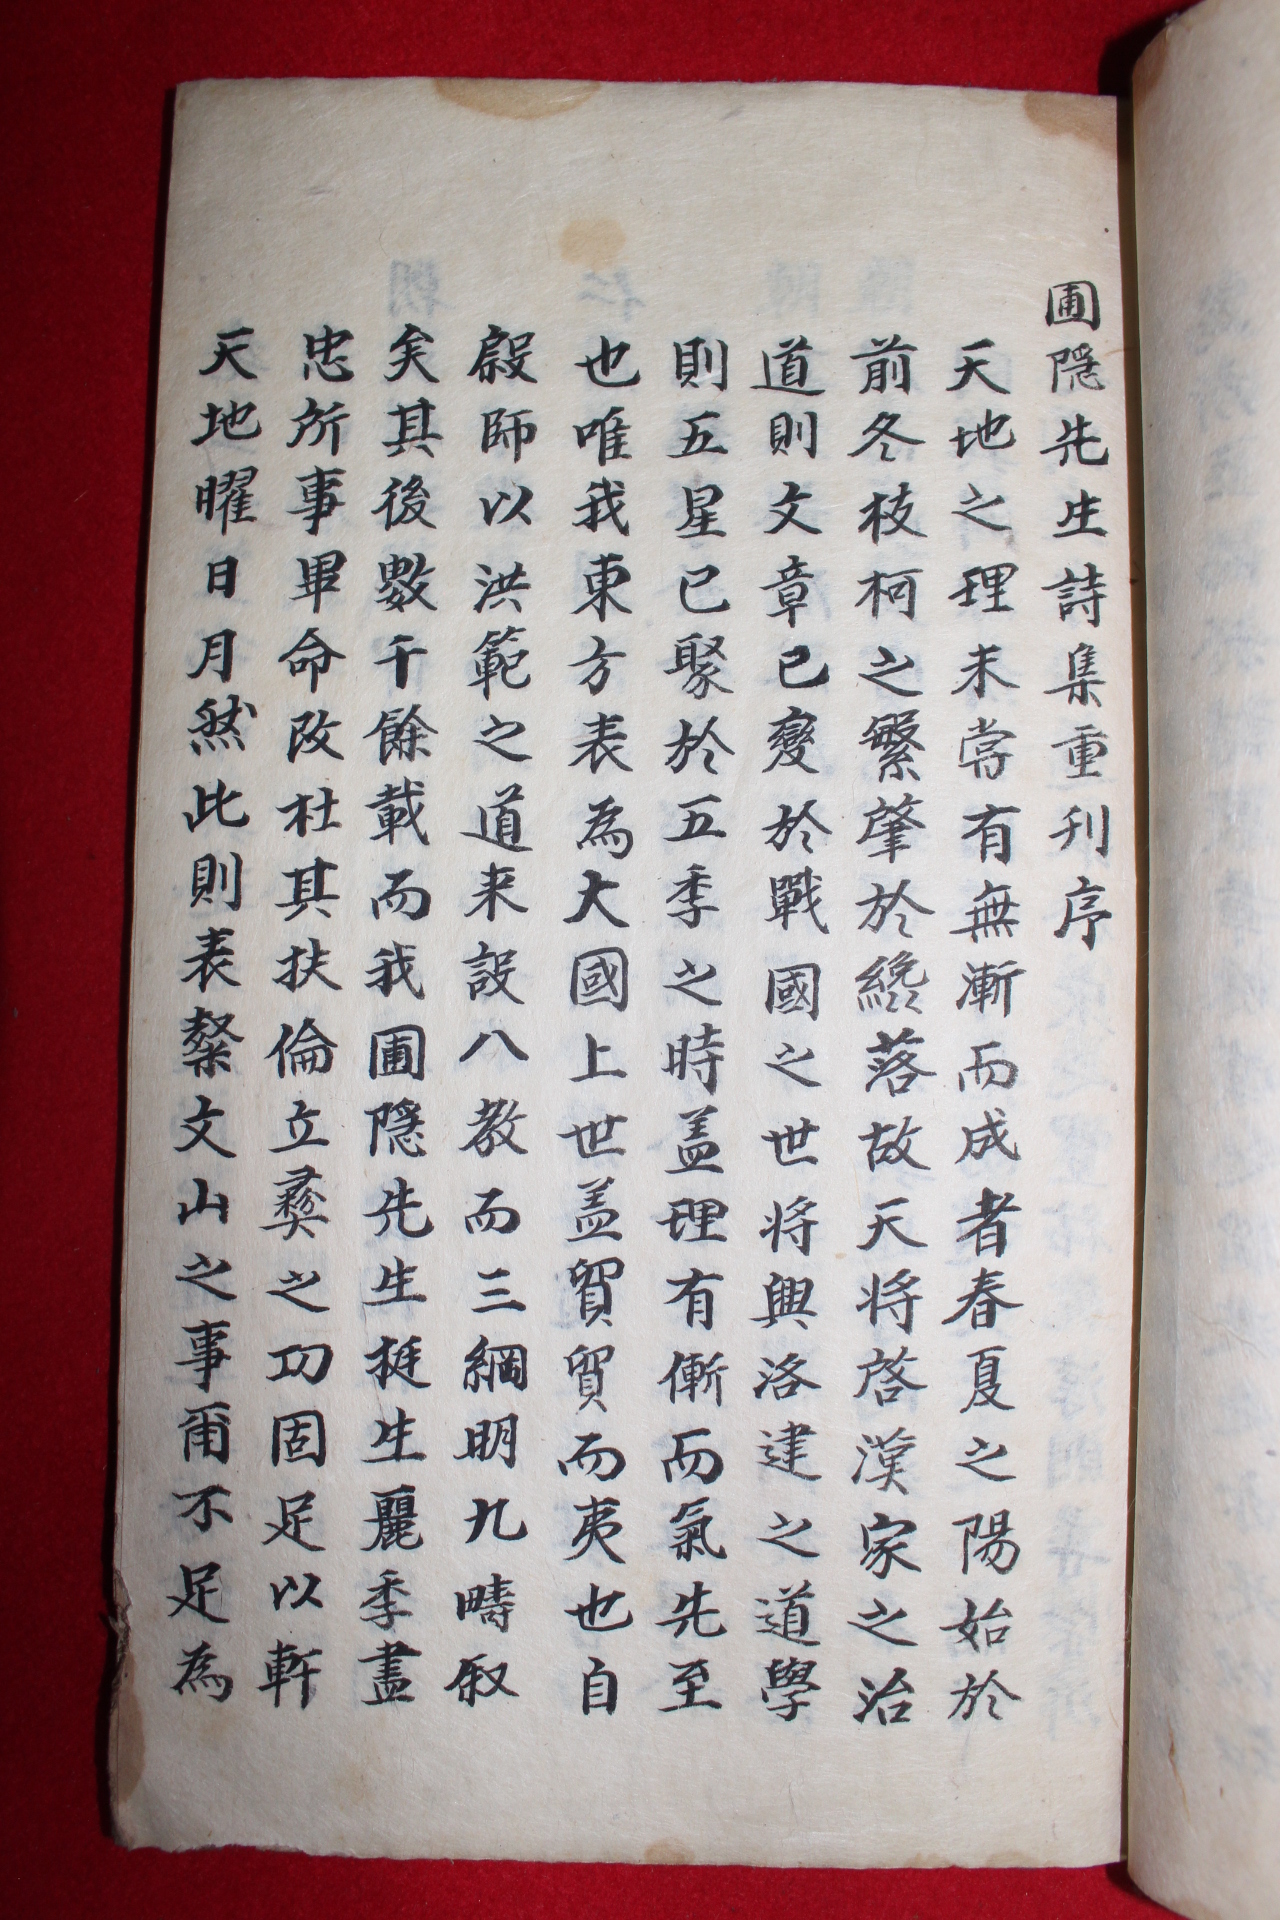 圃隱先生詩集重刊序
天地之理未嘗有無漸而成者春夏之陽始於
前冬枝柯之繁肇於纔落故天將啓漢家之治
道則文章已變於戰國之世將興洛建之道學
則五星已聚於五季之時盖理有漸而氣先至
也唯我東方表為大國上世盖貿貿而夷也自
殷師以洪範之道来設八教而三綱明九疇叙
矣其後數千餘載而我圃隱先生挺生麗季盡
忠所事畢命改社其扶倫立彛之功固足以軒
天地曜日月然此則表㮣文山之事爾不足為